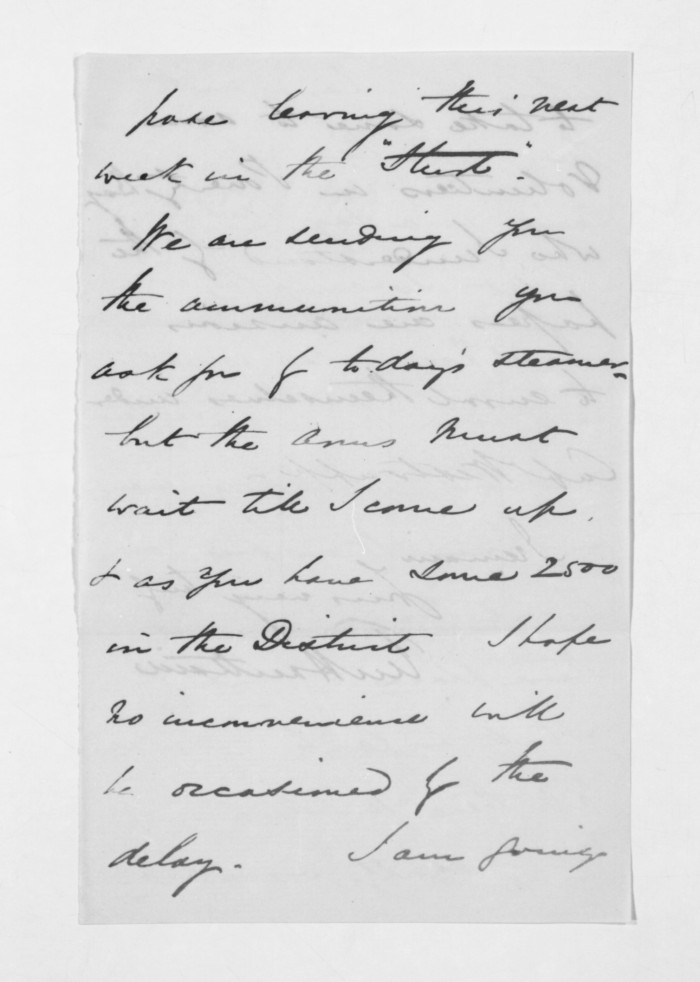 pose leaving this next
week in the "Sturt".
We are sending you
the ammunition you
ask for by to.day's steamer
but the arms must
wait till I come up.
& as you have some 2500
in the District I hope
no inconvenience will
be occasioned by the
delay. I am going